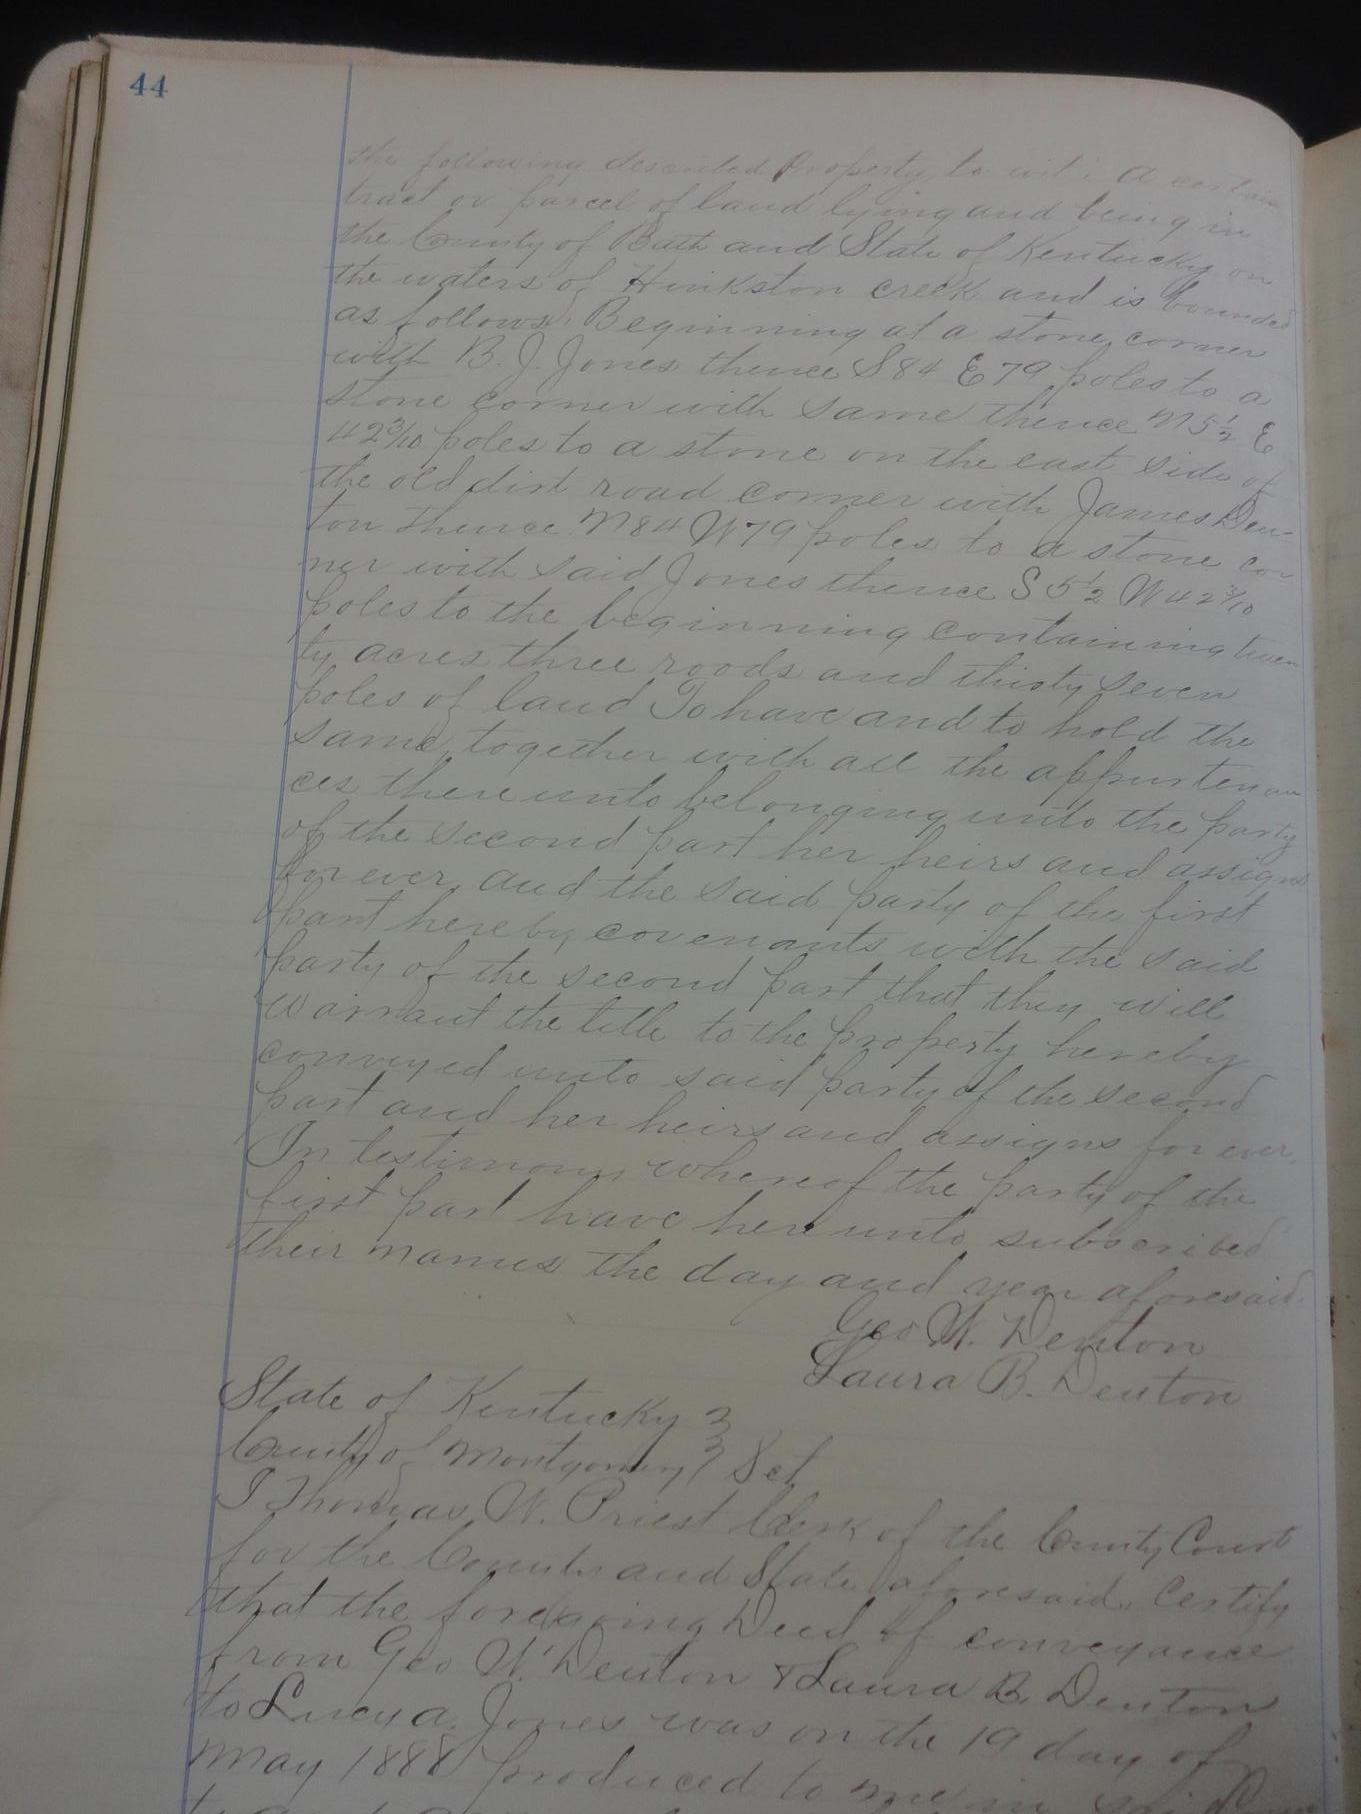 44
the following described Property to wit: A certain
tract or parcel of land lying and being in
the County of Bath and State of Kentucky on
the waters of Hinkston creek and is bounded
as follows, Beginning at a stone corner
with B. J. Jones thence S 84 E 79 poles to a
stone corner with same thence N 5½ E
42 3/10 poles to a stone on the east side of
the old dirt road corner with James Den-
ton thence N 84 W 79 poles to a stone cor
ner with said Jones thence S 5½ W 42 3/10
poles to the beginning containing twen
ty acres three roods and thirty seven
poles of land To have and to hold the
same together with all the appurtenan
ces there unto belonging unto the party
of the second part her heirs and assigns
for ever, and the said party of the first
part hereby covenants with the said
party of the second part that they will
warrant the title to the property hereby
conveyed unto said party of the second
part and her heirs and assigns for ever,
In testimony whereof the party of the
first part have here unto subscribed
their names the day and year aforesaid.
Geo W. Denton
Laura B. Denton
State of Kentucky }
County of Montgomery } Sct
I Thomas W. Priest Clerk of the County Court
for the County and State aforesaid, Certify
that the foregoing Deed of conveyance
from Geo W. Denton & Laura B. Denton
to Lucy A. Jones was on the 19 day of
May 1888 produced to me in